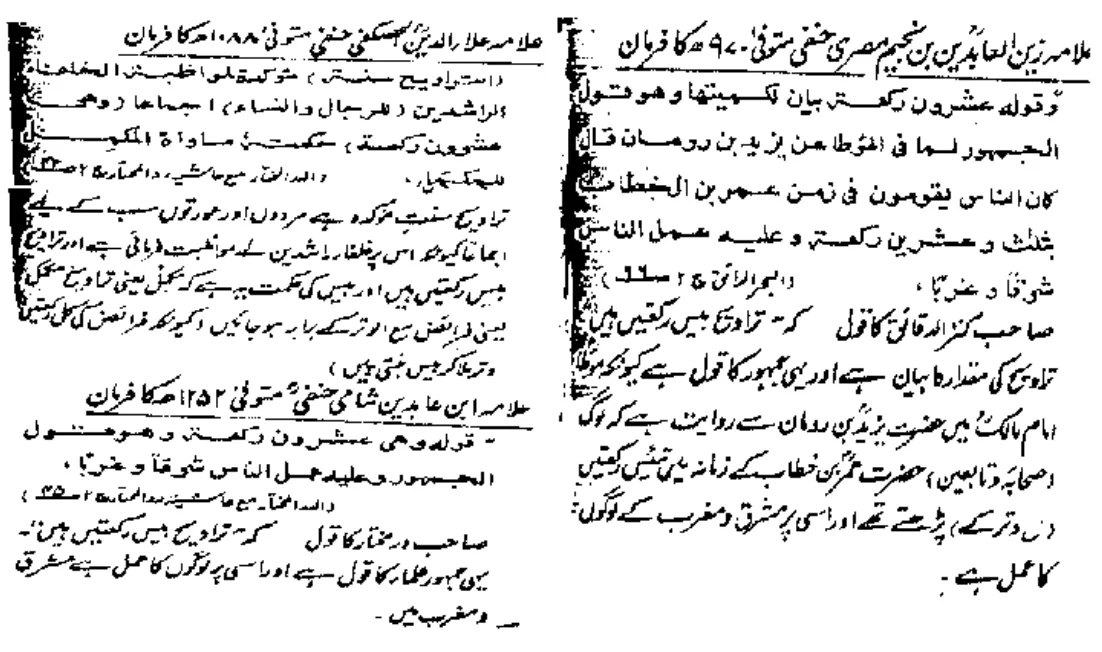 علامہ زین العابدین بن نجیم مصری حنفی متوفیٰ ۹۷۰ھ کا فرمان
وقولہ عشرون رکعة بیان لکمیتها و هو قول
الجمهور لما فی المؤطا عن یزید بن رومان قال
کان الناس یقومون فی زمن عمر بن الخطاب
بثلث و عشرین رکعة و علیه عمل الناس
شرقا و غربا ، (البحر الرائق ج ۲ صـ۶۶)
صاحب کنز الدقائق کا قول کہ تراویح بیس رکعتیں ہیں
تراویح کی مقدار کا بیان ہے اور یہی جمہور کا قول ہے کیونکہ موطا
امام مالکؒ میں حضرت یزید بن رومان سے روایت ہے کہ لوگ
(صحابہ و تابعین) حضرت عمرؓ بن خطاب کے زمانہ میں تیئس رکعتیں
وتر کے) پڑھتے تھے اور اسی پر مشرق و مغرب کے لوگوں
کا عمل ہے ۔
علامہ علاء الدین الحصکفی حنفی متوفیٰ ۱۰۸۸ھ کا فرمان
(التراویح سنة) مؤکدة لمواظبة الخلفاء
الراشدین (للرجال والنساء) اجماعا (وهی
عشرون رکعة) حکمتهٔ مساواة المکمل
للمکمل ، (الدر المختار مع حاشیہ رد المحتار ج ۲ صـ)
تراویح سنت مؤکدہ ہے مردوں اور عورتوں سب کے لیے
اجماعا کیونکہ اس پر خلفاء راشدین نے مواظبت فرمائی ہے اور تراویح
بیس رکعتیں ہیں اور بیس کی حکمت یہ ہے کہ مکمل یعنی تراویح مکمل
یعنی فرائض مع الوتر کے برابر ہو جائیں (کیونکہ فرائض کی کل رکعتیں
وتر ملا کر بیس بنتی ہیں)
علامہ ابن عابدین شامی حنفیؒ متوفیٰ ۱۲۵۲ھ کا فرمان
" قولہ وهی عشرون رکعة و هو قول
الجمهور و علیه عمل الناس شرقا و غربا ،
(الدر المختار مع حاشیہ رد المحتار ج ۲ صـ)
صاحب در مختار کا قول کہ " تراویح بیس رکعتیں ہیں" ۔
یہی جمہور علماء کا قول ہے اور اسی پر لوگوں کا عمل ہے مشرق
و مغرب میں ۔